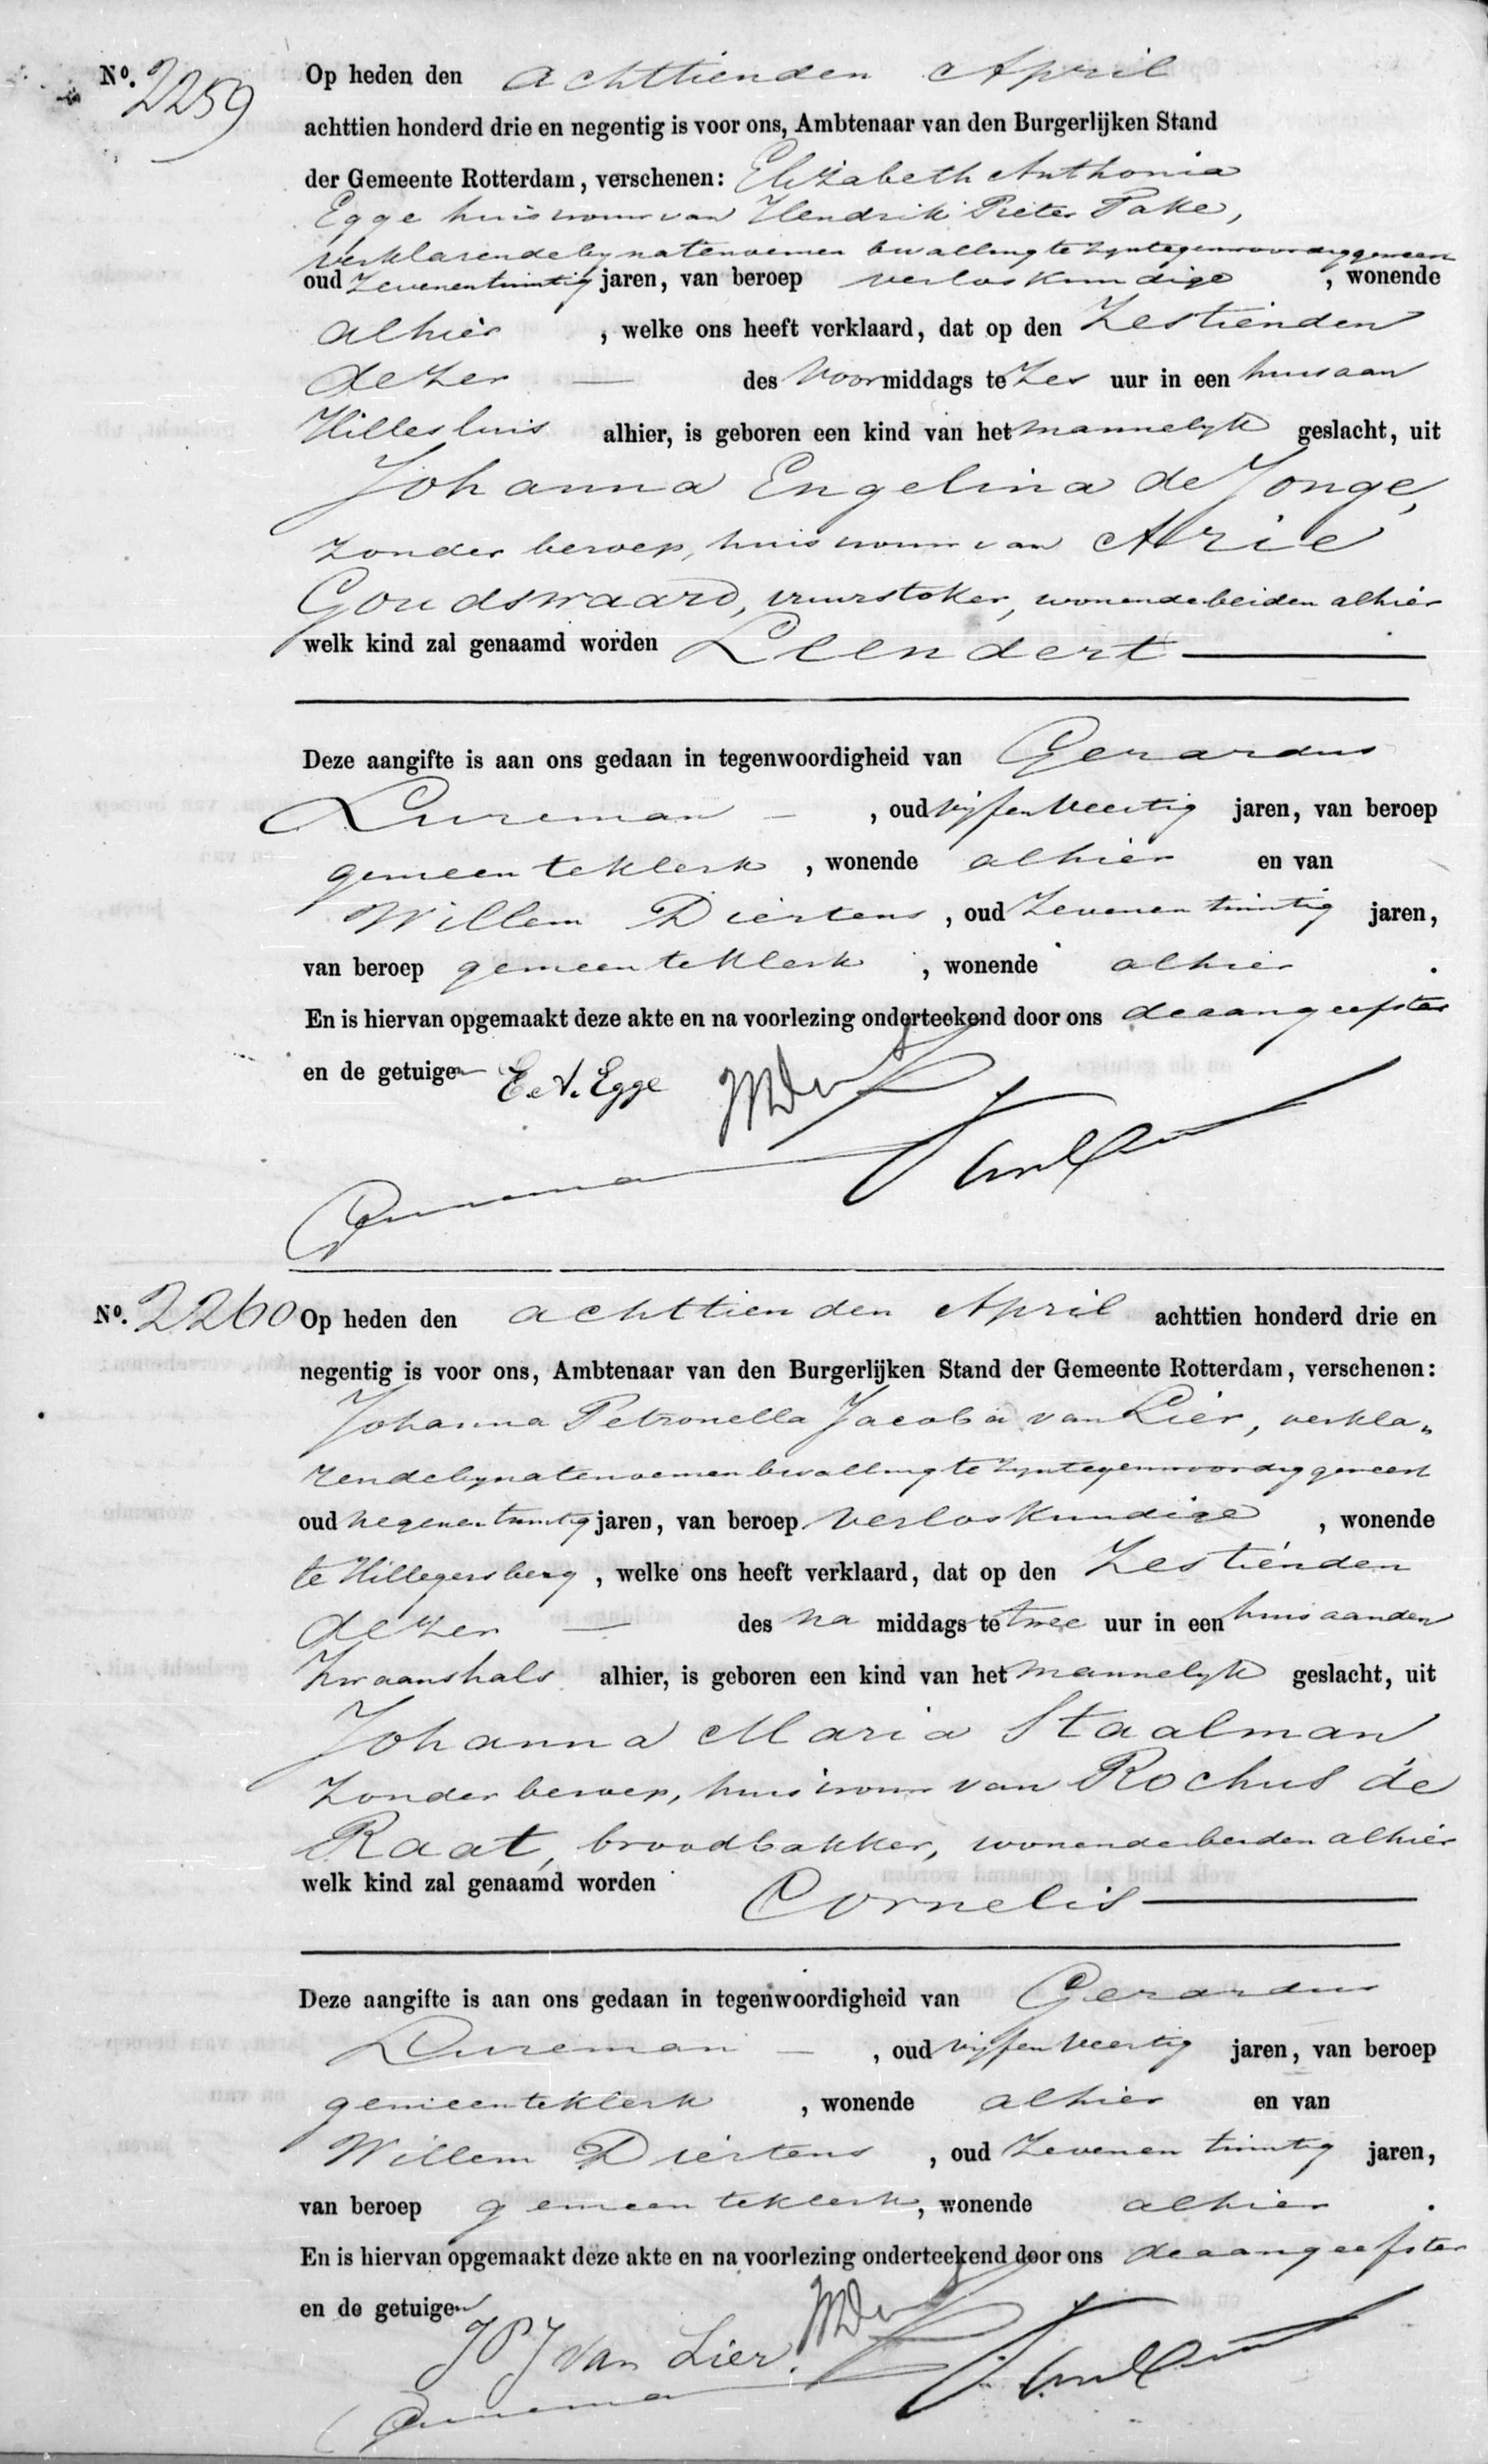 No. 2259 Op heden den achttienden April
achttien honderd drie en negentig is voor ons, Ambtenaar van den Burgerlijken Stand
der Gemeente Rotterdam, verschenen: Elizabeth Anthonia
Egge huisvrouw van Hendrik Pieter Pake,
verklarende by na te noemen bevalling te zyn tegenwoordig geweest
oud zevenentwintig jaren, van beroep verloskundige, wonende
alhier, welke ons heeft verklaard, dat op den zestienden
dezer — des voormiddags te zes uur in een huis aan
Hillesluis alhier, is geboren een kind van het mannelyk geslacht, uit
Johanna Engelina de Jonge,
zonder beroep, huisvrouw van Arie
Goudswaard, vuurstoker, wonende beiden alhier
welk kind zal genaamd worden Leendert —
Deze aangifte is aan ons gedaan in tegenwoordigheid van Gerardus
Dureman —, oud vyfenveertig jaren, van beroep
gemeenteklerk, wonende alhier en van
Willem Diertens, oud zevenentwintig jaren,
van beroep gemeenteklerk, wonende alhier.
En is hiervan opgemaakt deze akte en na voorlezing onderteekend door ons de aangeefster
en de getuigen E.A. Egge
Dureman
No. 2260 Op heden den achttienden April achttien honderd drie en
negentig is voor ons, Ambtenaar van den Burgerlijken Stand der Gemeente Rotterdam, verschenen:
Johanna Petronella Jacoba van Lier, verkla„
rende by na te noemen bevalling te zyn tegenwoordig geweest
oud negenentwintig jaren, van beroep verloskundige, wonende
te Hillegersberg, welke ons heeft verklaard, dat op den zestienden
dezer — des na middags te twee uur in een huis aan den
Zwaanshals alhier, is geboren een kind van het mannelyk geslacht, uit
Johanna Maria Staalman
zonder beroep, huisvrouw van Rochus de
Raat, broodbakker, wonende beiden alhier
welk kind zal genaamd worden Cornelis —
Deze aangifte is aan ons gedaan in tegenwoordigheid van Gerardus
Dureman —, oud vyfenveertig jaren, van beroep
gemeenteklerk, wonende alhier en van
Willem Diertens, oud zevenentwintig jaren,
van beroep gemeenteklerk, wonende alhier.
En is hiervan opgemaakt deze akte en na voorlezing onderteekend door ons de aangeefster
en de getuigen
JPJ van Lier.
Dureman